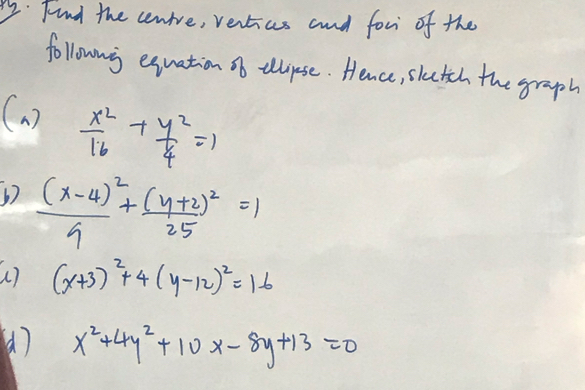 Find the centre, vertices and foci of the
following equation of ellipse. Hence, sketch the graph
(a) x²/16 + y²/4 = 1
b) (x-4)²/9 + (y+2)²/25 = 1
c) (x+3)² + 4(y-12)² = 16
d) x² + 4y² + 10x - 8y + 13 = 0